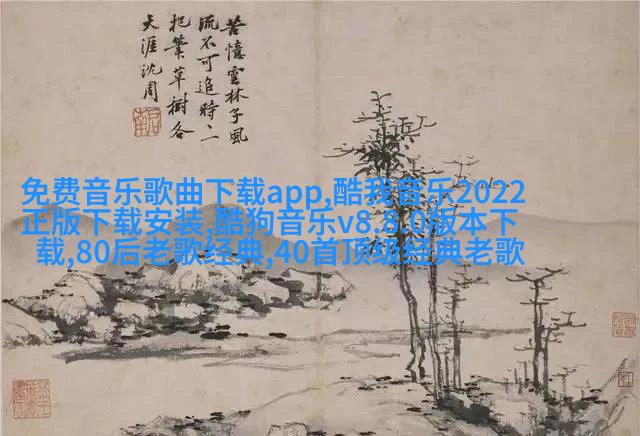 苦憶雲林子風
流不可追時二
把筆草樹各
天涯沈周
免费音乐歌曲下载app,酷我音乐2022
正版下载安装,酷狗音乐v8.8.0版本下
载,80后老歌经典,40首顶级经典老歌